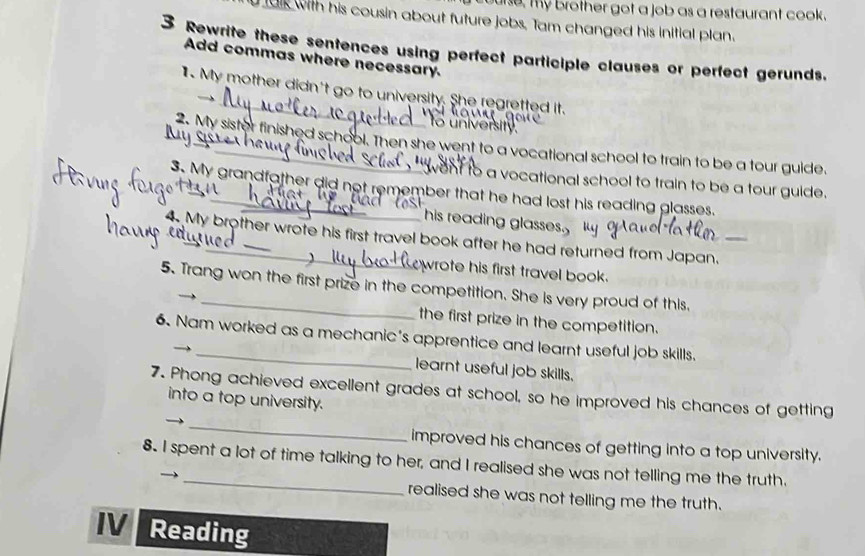 talk with his cousin about future jobs, Tam changed his initial plan.
my brother got a job as a restaurant cook.
3 Rewrite these sentences using perfect participle clauses or perfect gerunds.
Add commas where necessary.
1. My mother didn't go to university. She regretted it.
→ My mother regretted not having gone to university.
2. My sister finished school. Then she went to a vocational school to train to be a tour guide.
My sister having finished school, my sister went to a vocational school to train to be a tour guide.
3. My grandfather did not remember that he had lost his reading glasses.
Having forgotten that he had lost
having lost his reading glasses, my grandfather
4. My brother wrote his first travel book after he had returned from Japan.
having returned , my brother wrote his first travel book.
5. Trang won the first prize in the competition. She is very proud of this.
→ the first prize in the competition.
6. Nam worked as a mechanic's apprentice and learnt useful job skills.
→ learnt useful job skills.
7. Phong achieved excellent grades at school, so he improved his chances of getting
into a top university.
→ improved his chances of getting into a top university.
8. I spent a lot of time talking to her, and I realised she was not telling me the truth.
→ realised she was not telling me the truth.
IV Reading